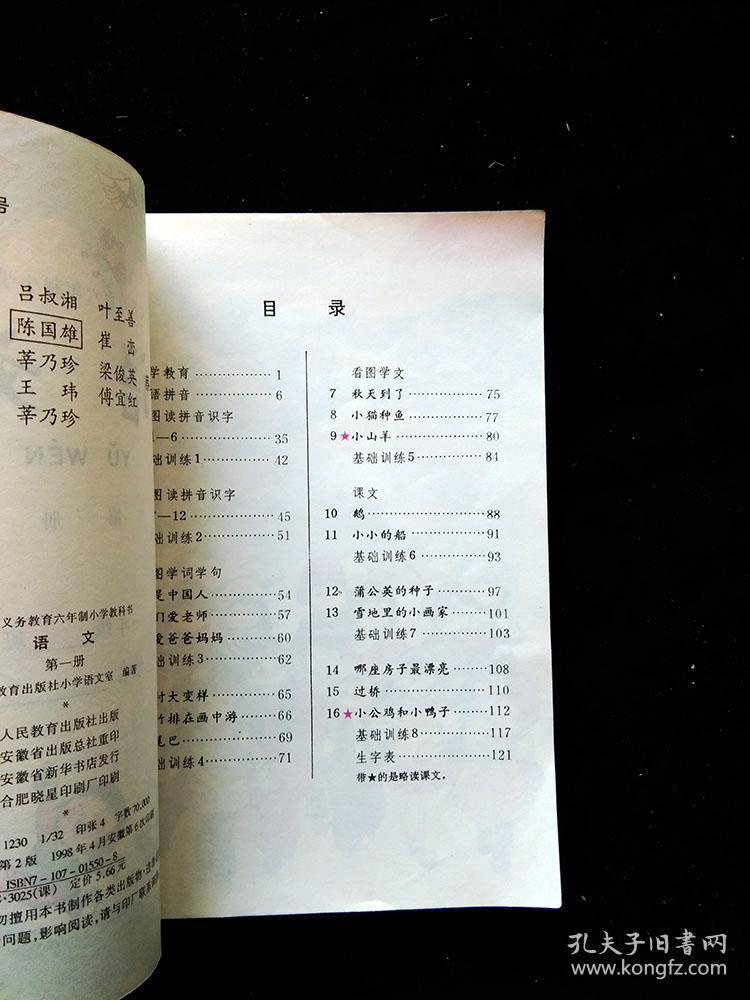 号
吕叔湘 叶至善
陈国雄 崔峦
莘乃珍 梁俊英
王玮 傅宜红
莘乃珍
YǓ WÉN
义务教育六年制小学教科书
语文
第一册
教育出版社小学语文室 编著
*
人民教育出版社出版
安徽省出版总社重印
安徽省新华书店发行
合肥晓星印刷厂印刷
*
1230 1/32 印张4 字数70,000
第2版 1998年4月安徽第6次印刷
ISBN7-107-01550-8
·3025(课) 定价5.66元
勿擅用本书制作各类出版物·违者
问题,影响阅读,请与印厂联系
目 录
学教育 1
语拼音 6
图读拼音识字
—6 35
础训练1 42
图读拼音识字
—12 45
础训练2 51
图学词学句
是中国人 54
们爱老师 57
爱爸爸妈妈 60
础训练3 62
村大变样 65
竹排在画中游 66
尾巴 69
础训练4 71
看图学文
7 秋天到了 75
8 小猫种鱼 77
9★小山羊 80
基础训练5 84
课文
10 鹅 88
11 小小的船 91
基础训练6 93
12 蒲公英的种子 97
13 雪地里的小画家 101
基础训练7 103
14 哪座房子最漂亮 108
15 过桥 110
16★小公鸡和小鸭子 112
基础训练8 117
生字表 121
带★的是略读课文。
孔夫子旧书网
www.kongfz.com